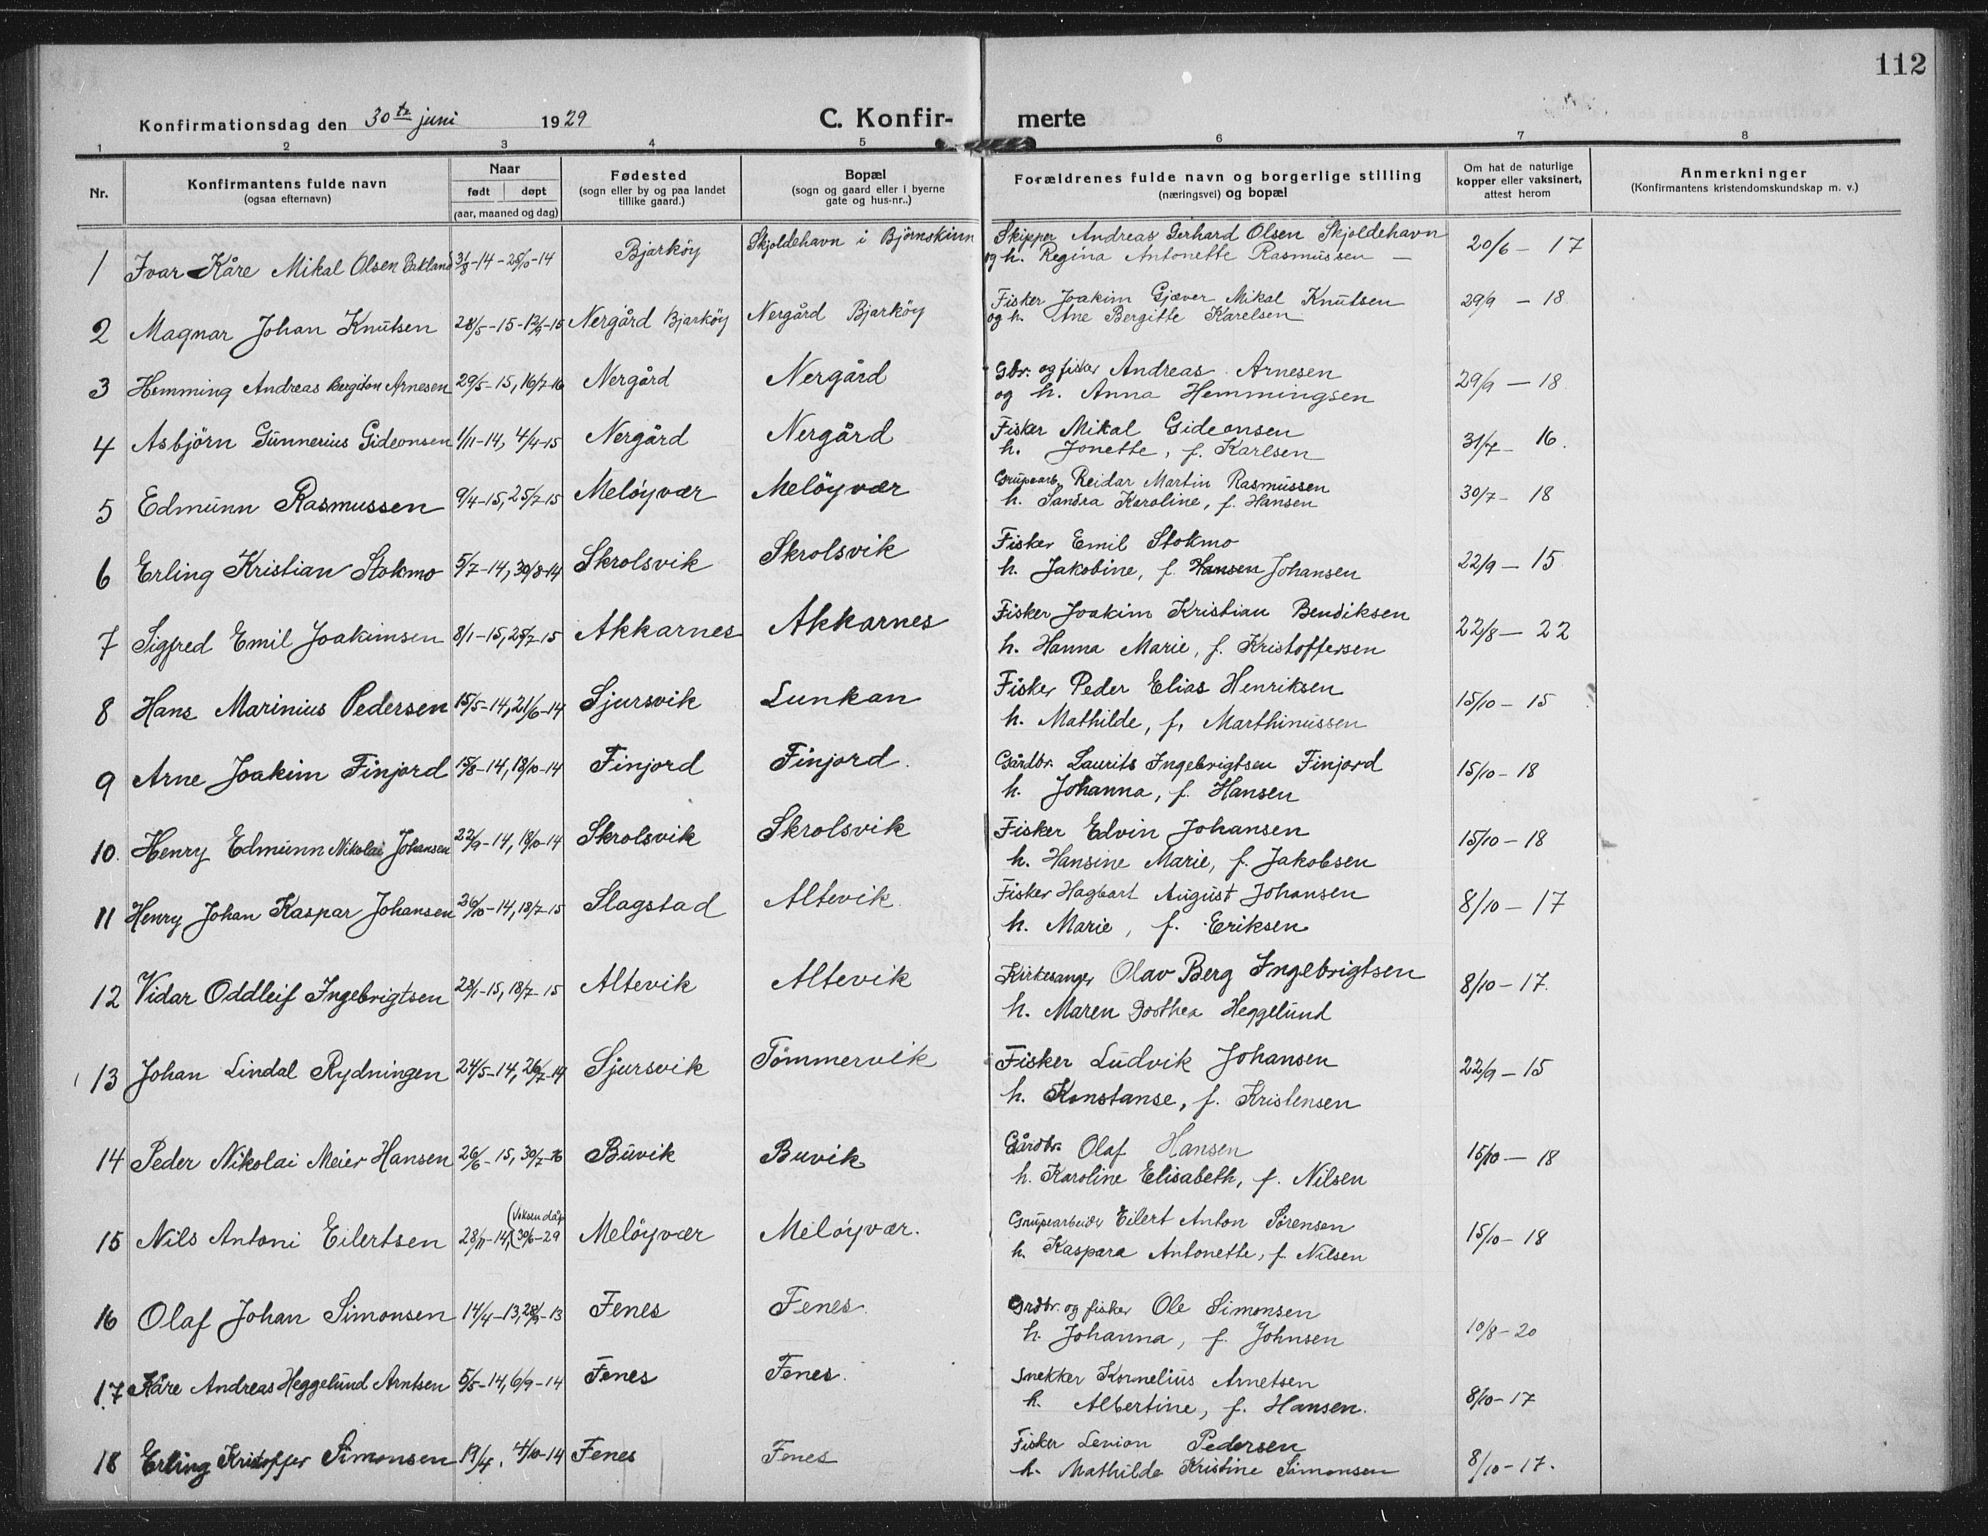 112
Konfirmationsdag den 30te juni 1929 C. Konfir- merte
1 2 3 4 5 6 7 8
Nr. Konfirmantens fulde navn (ogsaa efternavn) Naar født døpt (aar, maaned og dag) Fødested (sogn eller by og paa landet tillike gaard.) Bopæl (sogn og gaard eller i byerne gate og hus-nr..) Forældrenes fulde navn og borgerlige stilling (næringsvei) og bopæl Om hat de naturlige kopper eller vaksinert, attest herom Anmerkninger (Konfirmantens kristendomskundskap m. v.)
1 Ivar Kåre Mikal Olsen 31/8-14 - 25/10-14 Bjarköy Skjoldehavn i Björnskinn Skipper Andreas Gerhard Olsen Skjoldehavn 20/6 - 17
og h. Regina Antonette Rasmussen —
2 Magnar Johan Knutsen 28/5-15 - 12/9-15 Nergård Bjarköy Nergård Bjarköy Fisker Joakim Gjæver Mikal Knutsen 29/9 - 18
og h. Ane Bergitte Karelsen
3 Hemming Andreas Bergiton Arnesen 29/5-15, 16/7-16 Nergård Nergård Gbr. og fisker Andreas Arnesen 29/9 - 18
og h. Anna Hemmingsen
4 Asbjörn Gunnerius Gideonsen 1/11-14, 4/4-15 Nergård Nergård Fisker Mikal Gideonsen 31/7 - 16.
h. Jonette, f. Karlsen
5 Edmunn Rasmussen 9/4-15, 25/7-15 Melöyvær Melöyvær Grupearb. Reidar Martin Rasmussen 30/7 - 18
h. Sandra Karoline, f. Hansen
6 Erling Kristian Stokmo 5/7-14, 30/8-14 Skrolsvik Skrolsvik Fisker Emil Stokmo 22/9 - 15
h. Jakobine, f. Hansen Johansen
7 Sigfred Emil Joakimsen 8/1-15, 25/7-15 Akkarnes Akkarnes Fisker Joakim Kristian Bendiksen 22/8 - 22
h. Hanna Marie, f. Kristoffersen
8 Hans Marinius Pedersen 15/5-14, 21/6-14 Sjursvik Lunkan Fisker Peder Elias Henriksen 15/10 - 15
h. Mathilde, f. Marthinussen
9 Arne Joakim Finjord 15/8-14, 18/10-14 Finjord Finjord. Gårdbr. Laurits Ingebrigtsen Finjord 15/10 - 18
h. Johanna, f. Hansen
10. Henry Edmunn Nikolai Johansen 22/9-14, 18/10-14 Skrolsvik Skrolsvik Fisker Edvin Johansen 15/10 - 18
h. Hansine Marie, f. Jakobsen
11 Henry Johan Kaspar Johansen 26/10-14, 18/7-15 Slagstad Altevik. Fisker Hagbart August Johansen 8/10 - 17
h. Marie, f. Eriksen
12 Vidar Oddleif Ingebrigtsen 28/1-15, 18/7-15 Altevik Altevik Kirkesanger Olav Berg Ingebrigtsen 8/10 - 17.
h. Maren Dorthea Heggelund
13 Johan Lindal Rydningen 24/5-14, 26/7-14 Sjursvik Tömmervik Fisker Ludvik Johansen 22/9 - 15
h. Konstanse, f. Kristensen
14 Peder Nikolai Meier Hansen 26/6-15, 30/7-16 Buvik Buvik Gårdbr. Olaf Hansen 15/10 - 18
h. Karoline Elisabeth, f. Nilsen
15 Nils Antoni Eilertsen 28/11-14, (Voksendåp 30/6-29 Melöyvær Melöyvær. Grupearbeider Eilert Anton Sörensen 15/10 - 18
h. Kaspara Antonette, f. Nilsen
16 Olaf Johan Simonsen 14/4-13, 28/9-13 Fenes Fenes. Grdbr. og fisker Ole Simonsen 10/8 - 20
h. Johanna, f. Johnsen
17 Kåre Andreas Heggelund Arntsen 5/5-14, 6/9-14 Fenes Fenes. Snekker Kornelius Arnetsen 8/10 - 17
h. Albertine, f. Hansen.
18 Erling Kristoffer Simonsen 19/4, 4/10-14 Fenes Fenes Fisker Pedersen 8/10 - 17.
h. Mathilde Kristine Simonsen